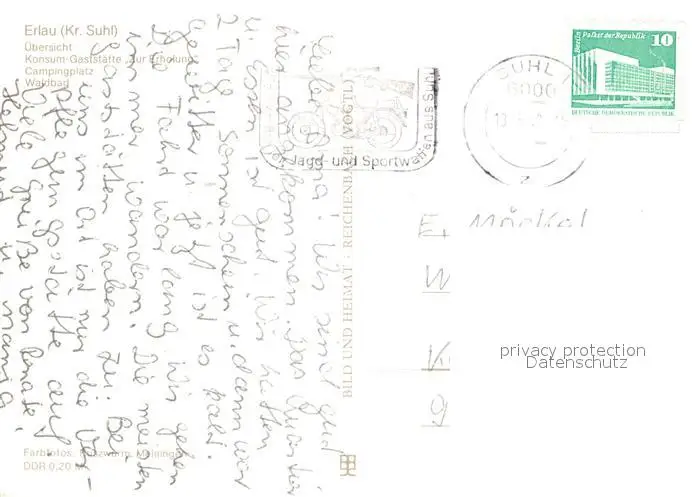 Erlau (Kr. Suhl)
Übersicht
Konsum-Gaststätte „Zur Erholung"
Campingplatz
Waldbad
Liebe Oma! Wir sind gut
hier angekommen. Das Quartier
u. Essen ist gut. Wir hatten
2 Tage Sonnenschein u. dann war
Gewitter u. jetzt ist es kalt.
Die Fahrt war lang. Wir gehen
immer wandern. Die meisten
Gaststätten haben zu. Bei
uns im Ort ist nur die
offen
Viele Grüße von
BILD UND HEIMAT · REICHENBACH VOGTL
Farbfotos
Meiningen
DDR 0,20 M
SUHL 1
6000
2
Jagd- und Sportwaffen aus Suhl
Berlin Palast der Republik
10
DEUTSCHE DEMOKRATISCHE REPUBLIK
E. Möckel
W
K
9
privacy protection
Datenschutz